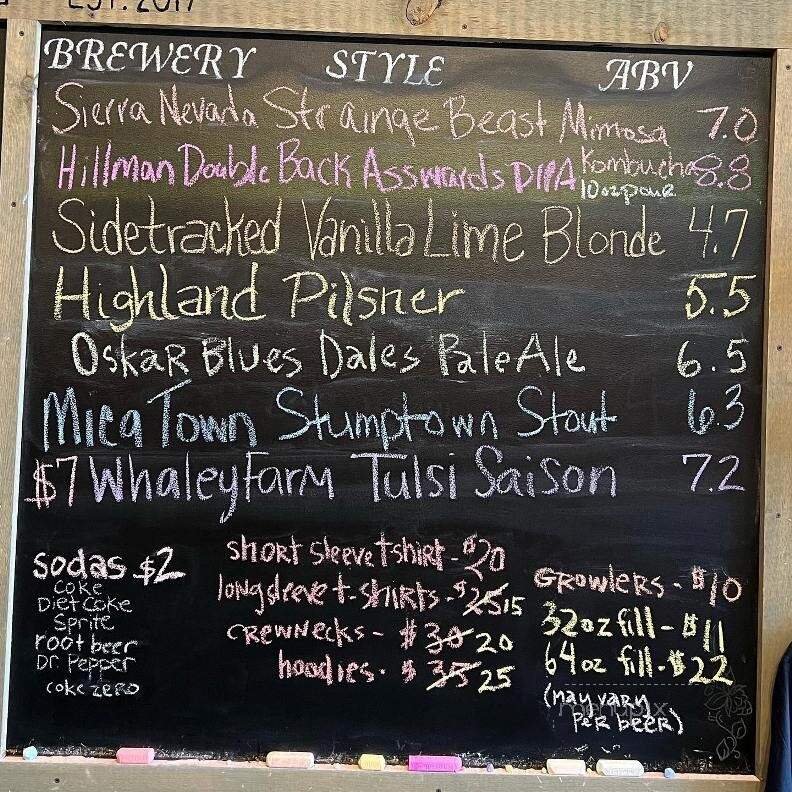 EST. 2017
BREWERY STYLE ABV
Sierra Nevada Strainge Beast Mimosa Kombucha 7.0
Hillman Double Back Asswards DIPA 10oz pour 8.8
Sidetracked Vanilla Lime Blonde 4.7
Highland Pilsner 5.5
Oskar Blues Dales Pale Ale 6.5
Mica Town Stumptown Stout 6.3
$7 Whaley Farm Tulsi Saison 7.2
Sodas $2
Coke
Diet Coke
Sprite
root beer
Dr. Pepper
Coke zero
short sleeve t-shirt - $20
long sleeve t-shirts - $25 15
crewnecks - $30 20
hoodies - $35 25
Growlers - $10
32oz fill - $11
64oz fill - $22
(may vary
per beer)
menupix